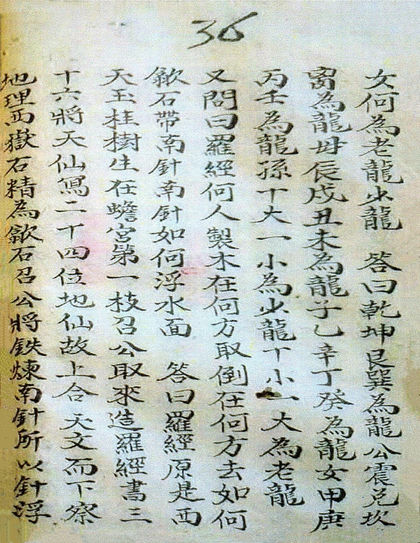 36
女何為老龍少龍 答曰乾坤艮巽為龍公震兌坎
离為龍母辰戌丑未為龍子乙辛丁癸為龍女甲庚
丙壬為龍孫十大一小為少龍十小一大為老龍
又問曰羅經何人製木在何方取倒在何方去如何
歙石帶南針南針如何浮水面 答曰羅經原是西
天玉柱樹生在蟾宮第一枝召公取來造羅經書三
十六將天仙寫二十四位地仙故上合 天文而下察
地理西嶽石精為歙石召公將鉄煉南針所以針浮